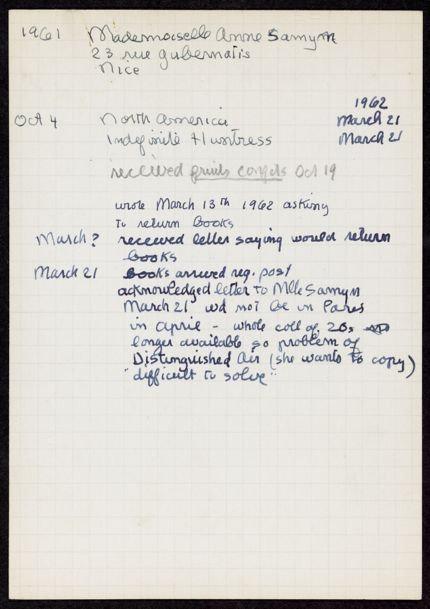 1961 Mademoiselle Anne Samyn
23 rue Gubernatis
Nice
1962
Oct 4 North America March 21
Indefinite Huntress March 21
received Oct 19
wrote March 13th 1962 asking
to return books
March? received letter saying would return
books
March 21 books arrived reg. post
acknowledged letter to Mlle Samyn
March 21 wd not be in Paris
in april - whole coll of 20s no
longer available so problem of
Distinguished Air (she wants to copy)
"difficult to solve"